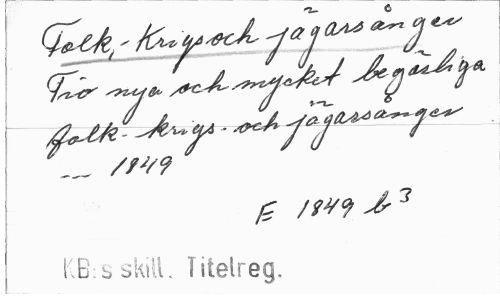 Folk,- Krigs och jägarsånger
Tio nya och mycket begärliga
folk- krigs- och jägarsånger
--- 1849
E 1849 b3
KB:s skill. Titelreg.